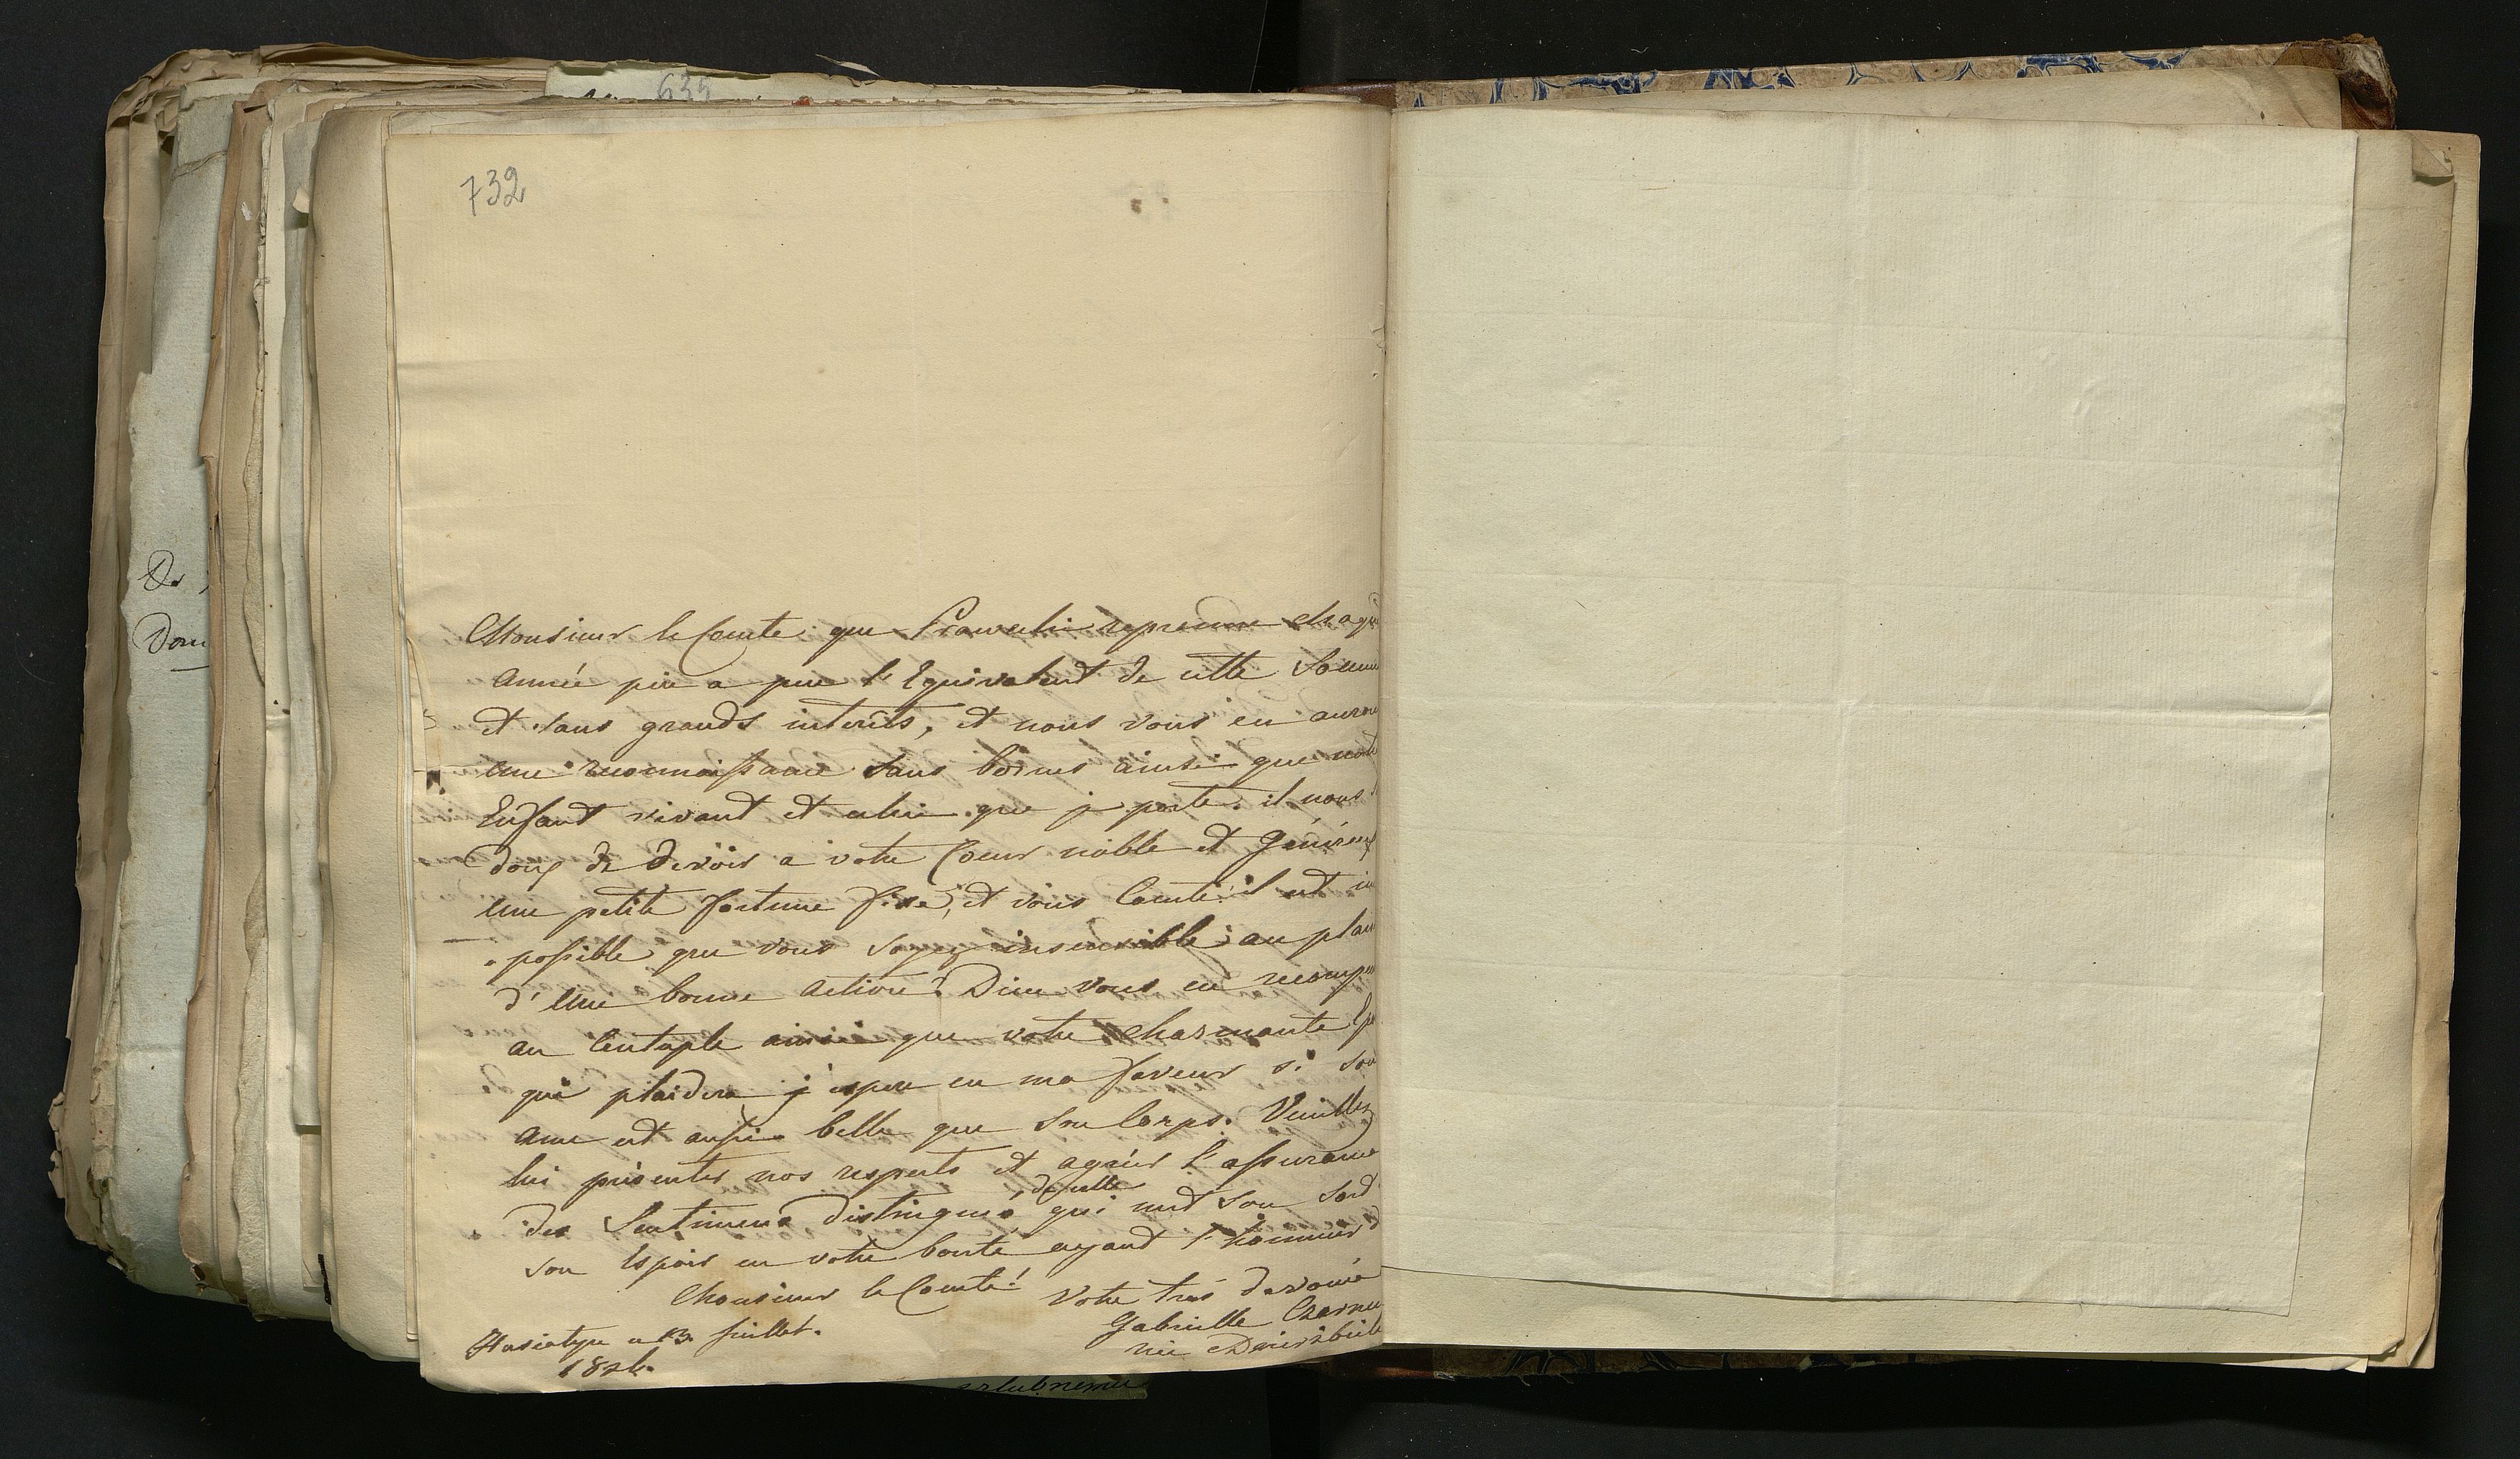 635
732
De
Dom
Monsieur le Comte que Prawecki reprenne chaque
année peu a peu l'Equivalent de cette Somm
et sans grands interêts, et nous vous en auron
une reconnoissance sans bornes ainsi que notr
Enfant vivant et celui que je porte. il nous
doux de devoir a votre Coeur noble et Généreux
une petite fortune fixe, et vous Comte! il est im
possible que vous soyez insensible au plai
d'une bonne action? Dieu vous en recompen
au Centuple ainsi que votre charmante Ep
qui plaidera j'espere en ma faveur si son
ame est aussi belle que son Corps. Veuillez
lui présenter nos respects et agréer l'assurance
des Sentimens distingués de celle qui met son sort
son Espoir en votre bonté ayant l'honneur d
Monsieur le Comte! Votre trés devouée
Gabrielle Czarne
née
a 13. Juillet.
1824.